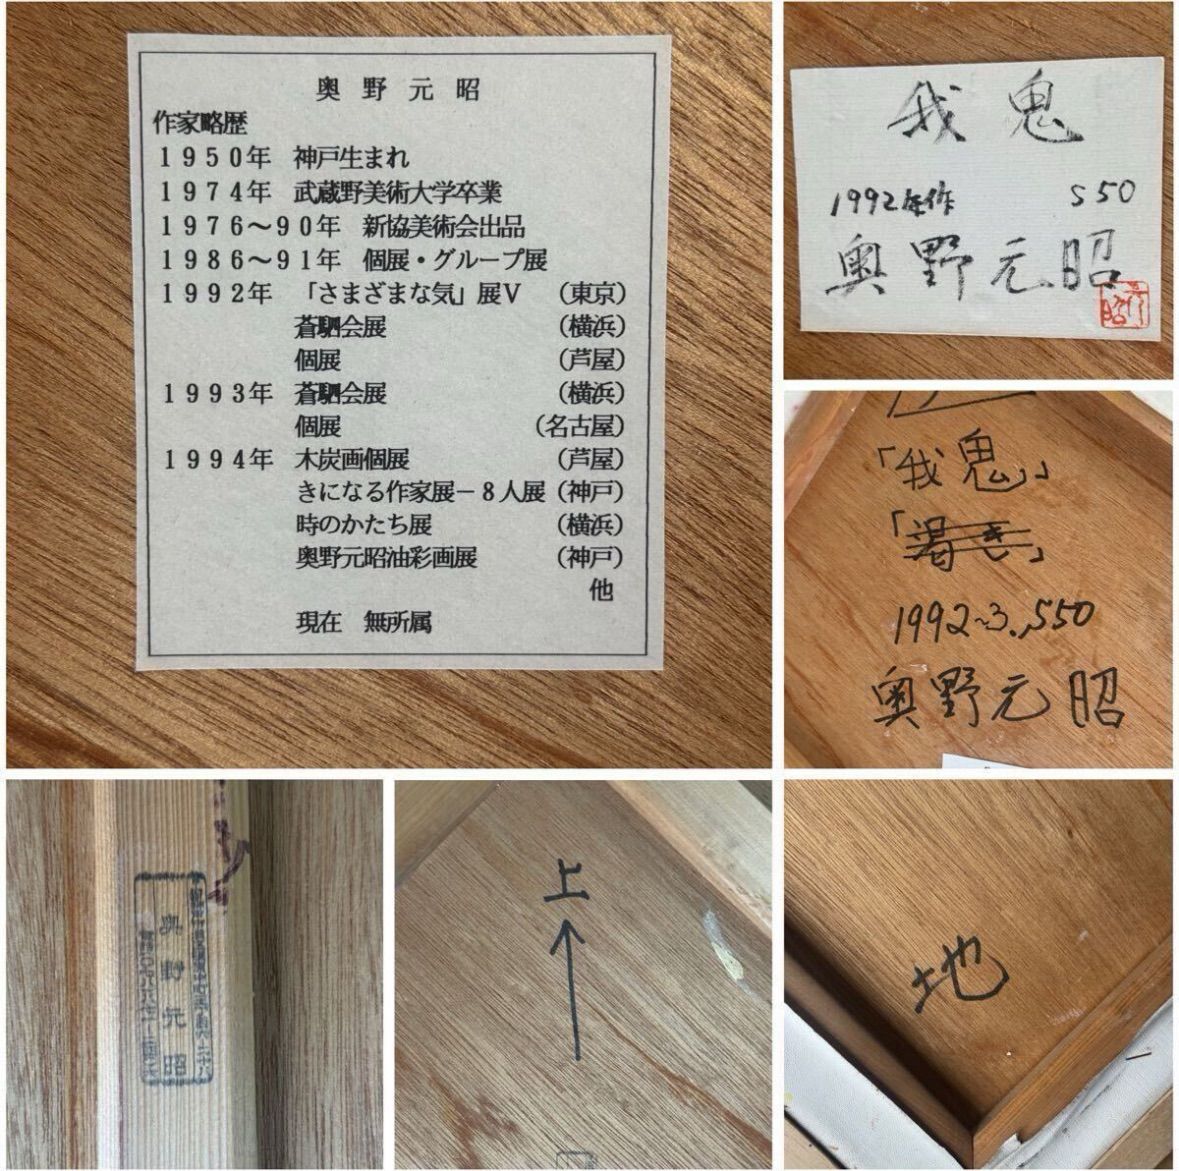 奥野元昭
作家略歴
1950年 神戸生まれ
1974年 武蔵野美術大学卒業
1976〜90年 新協美術会出品
1986〜91年 個展・グループ展
1992年 「さまざまな気」展V (東京)
蒼騆会展 (横浜)
個展 (芦屋)
1993年 蒼騆会展 (横浜)
個展 (名古屋)
1994年 木炭画個展 (芦屋)
きになる作家展－8人展 (神戸)
時のかたち展 (横浜)
奥野元昭油彩画展 (神戸)
他
現在 無所属
我鬼
1992年作 S50
奥野元昭
「我鬼」
「渇き」
1992~3. S50
奥野元昭
奥野元昭
上
地